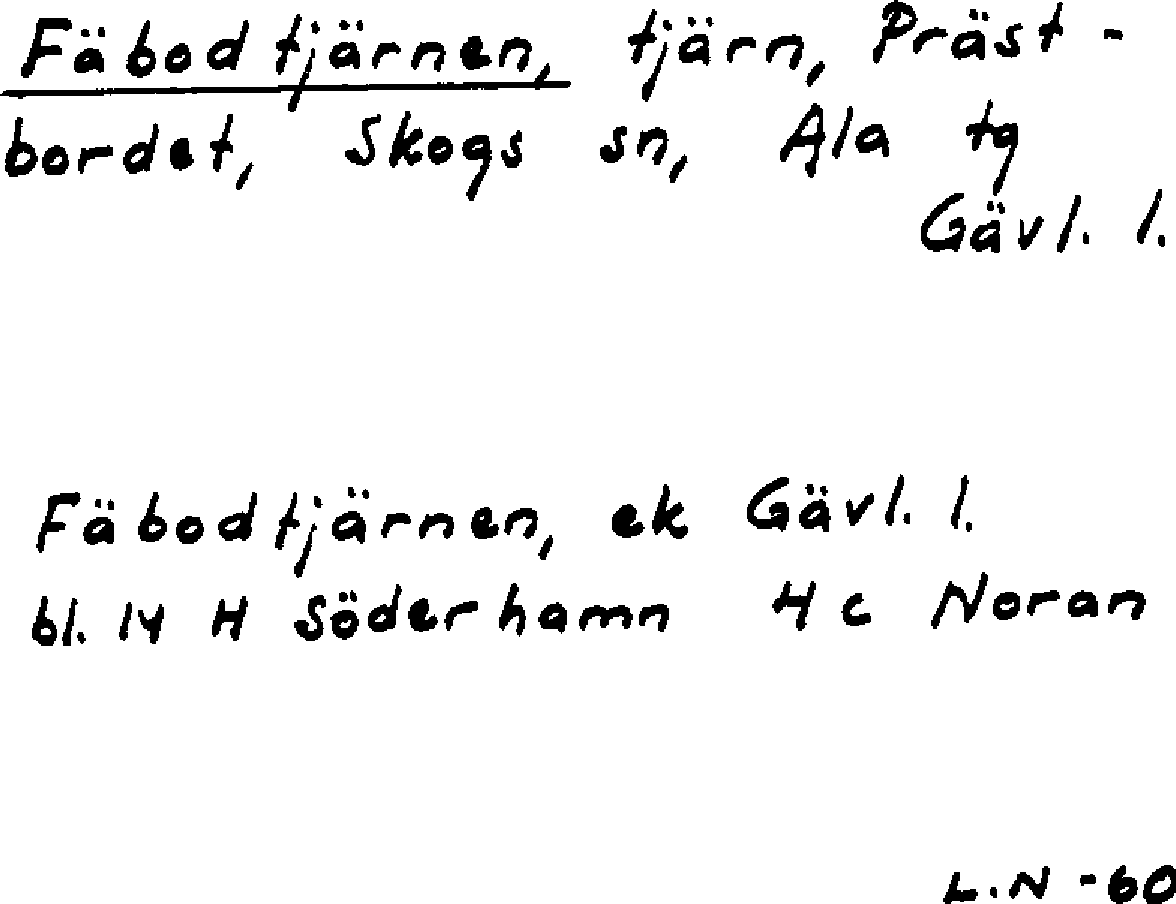 Fäbodtjärnen, tjärn, Präst-
bordet, Skogs sn, Ala tg
Gävl. l.
Fäbodtjärnen, ek Gävl. l.
bl. 14 H Söderhamn 4 c Noran
L.N -60